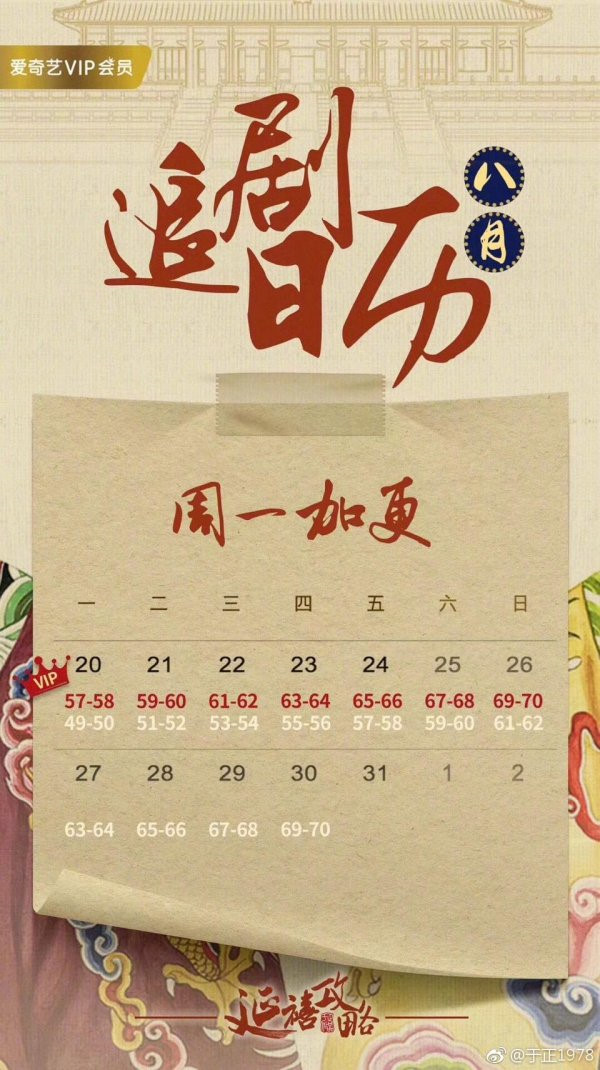 爱奇艺VIP会员
追剧日历
八月
周一加更
一 二 三 四 五 六 日
20 21 22 23 24 25 26
VIP
57-58 59-60 61-62 63-64 65-66 67-68 69-70
49-50 51-52 53-54 55-56 57-58 59-60 61-62
27 28 29 30 31 1 2
63-64 65-66 67-68 69-70
延禧攻略
@于正1978